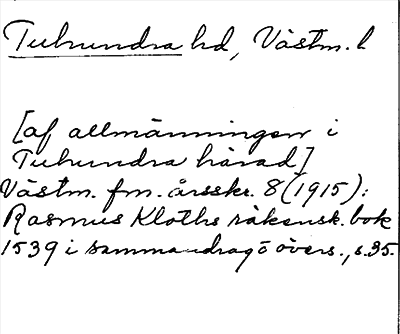 Tuhundra hd, Västm. l
[af allmänningen i
Tuhundra härad]
Västm. fm. årsskr. 8 (1915):
Rasmus Kloths räkensk. bok
1539 i sammandrag o övers., s. 35.